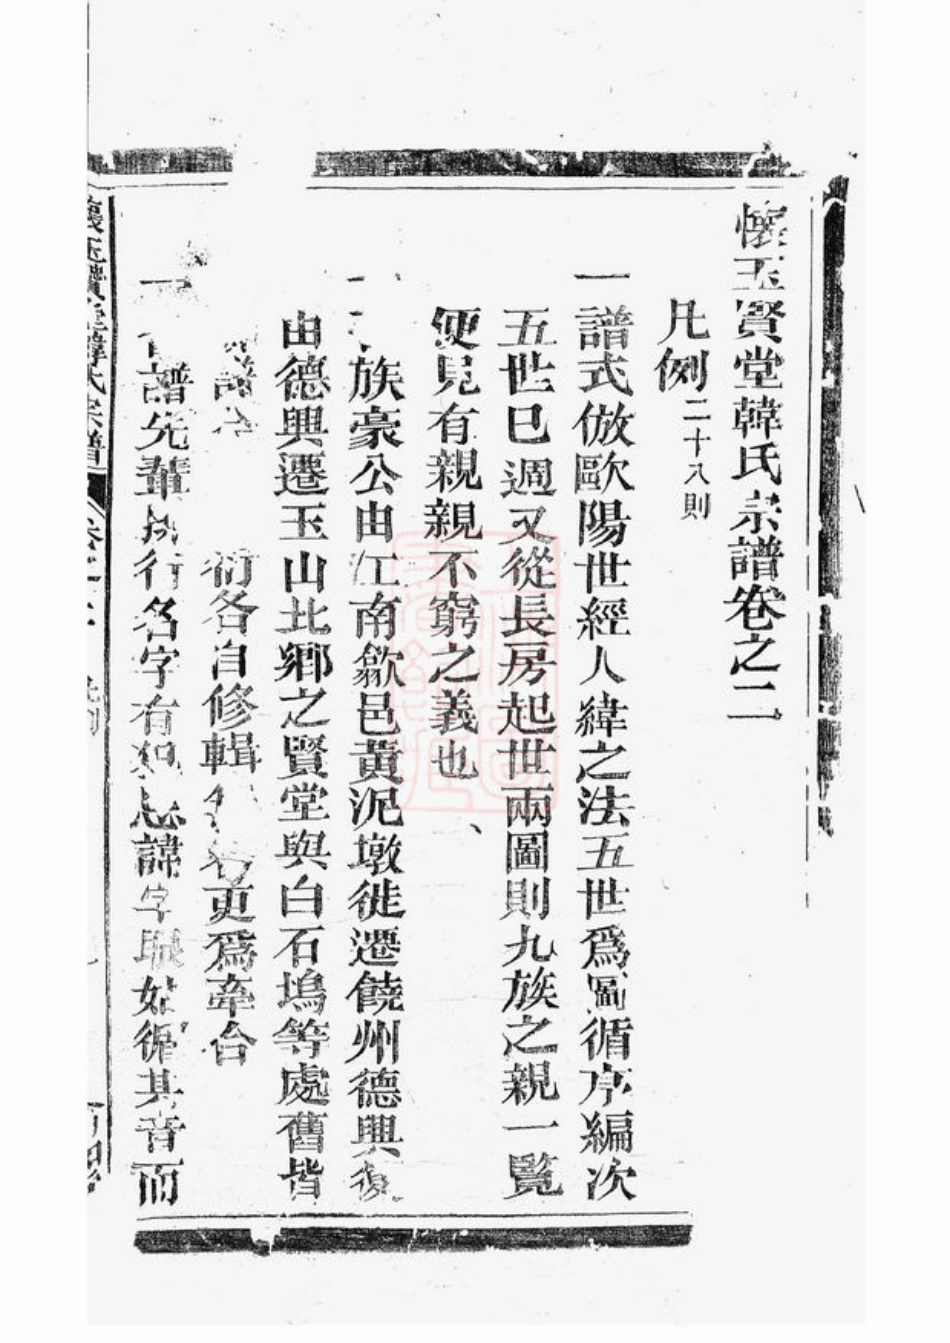 懷玉賢堂韓氏宗譜卷之二
凡例二十八則
一譜式倣歐陽世經人緯之法五世爲圖循序編次
五世已週又從長房起世兩圖則九族之親一覽
便見有親親不窮之義也、
一族豪公由江南歙邑黃泥墩徙遷饒州德興復
由德興遷玉山北鄉之賢堂與白石塢等處舊皆
譜 衍各自修輯 更爲牽合
一 譜先輩 行名字有犯忌諱字眼姑循其音而
懷玉賢堂韓氏宗譜 卷之二 凡例